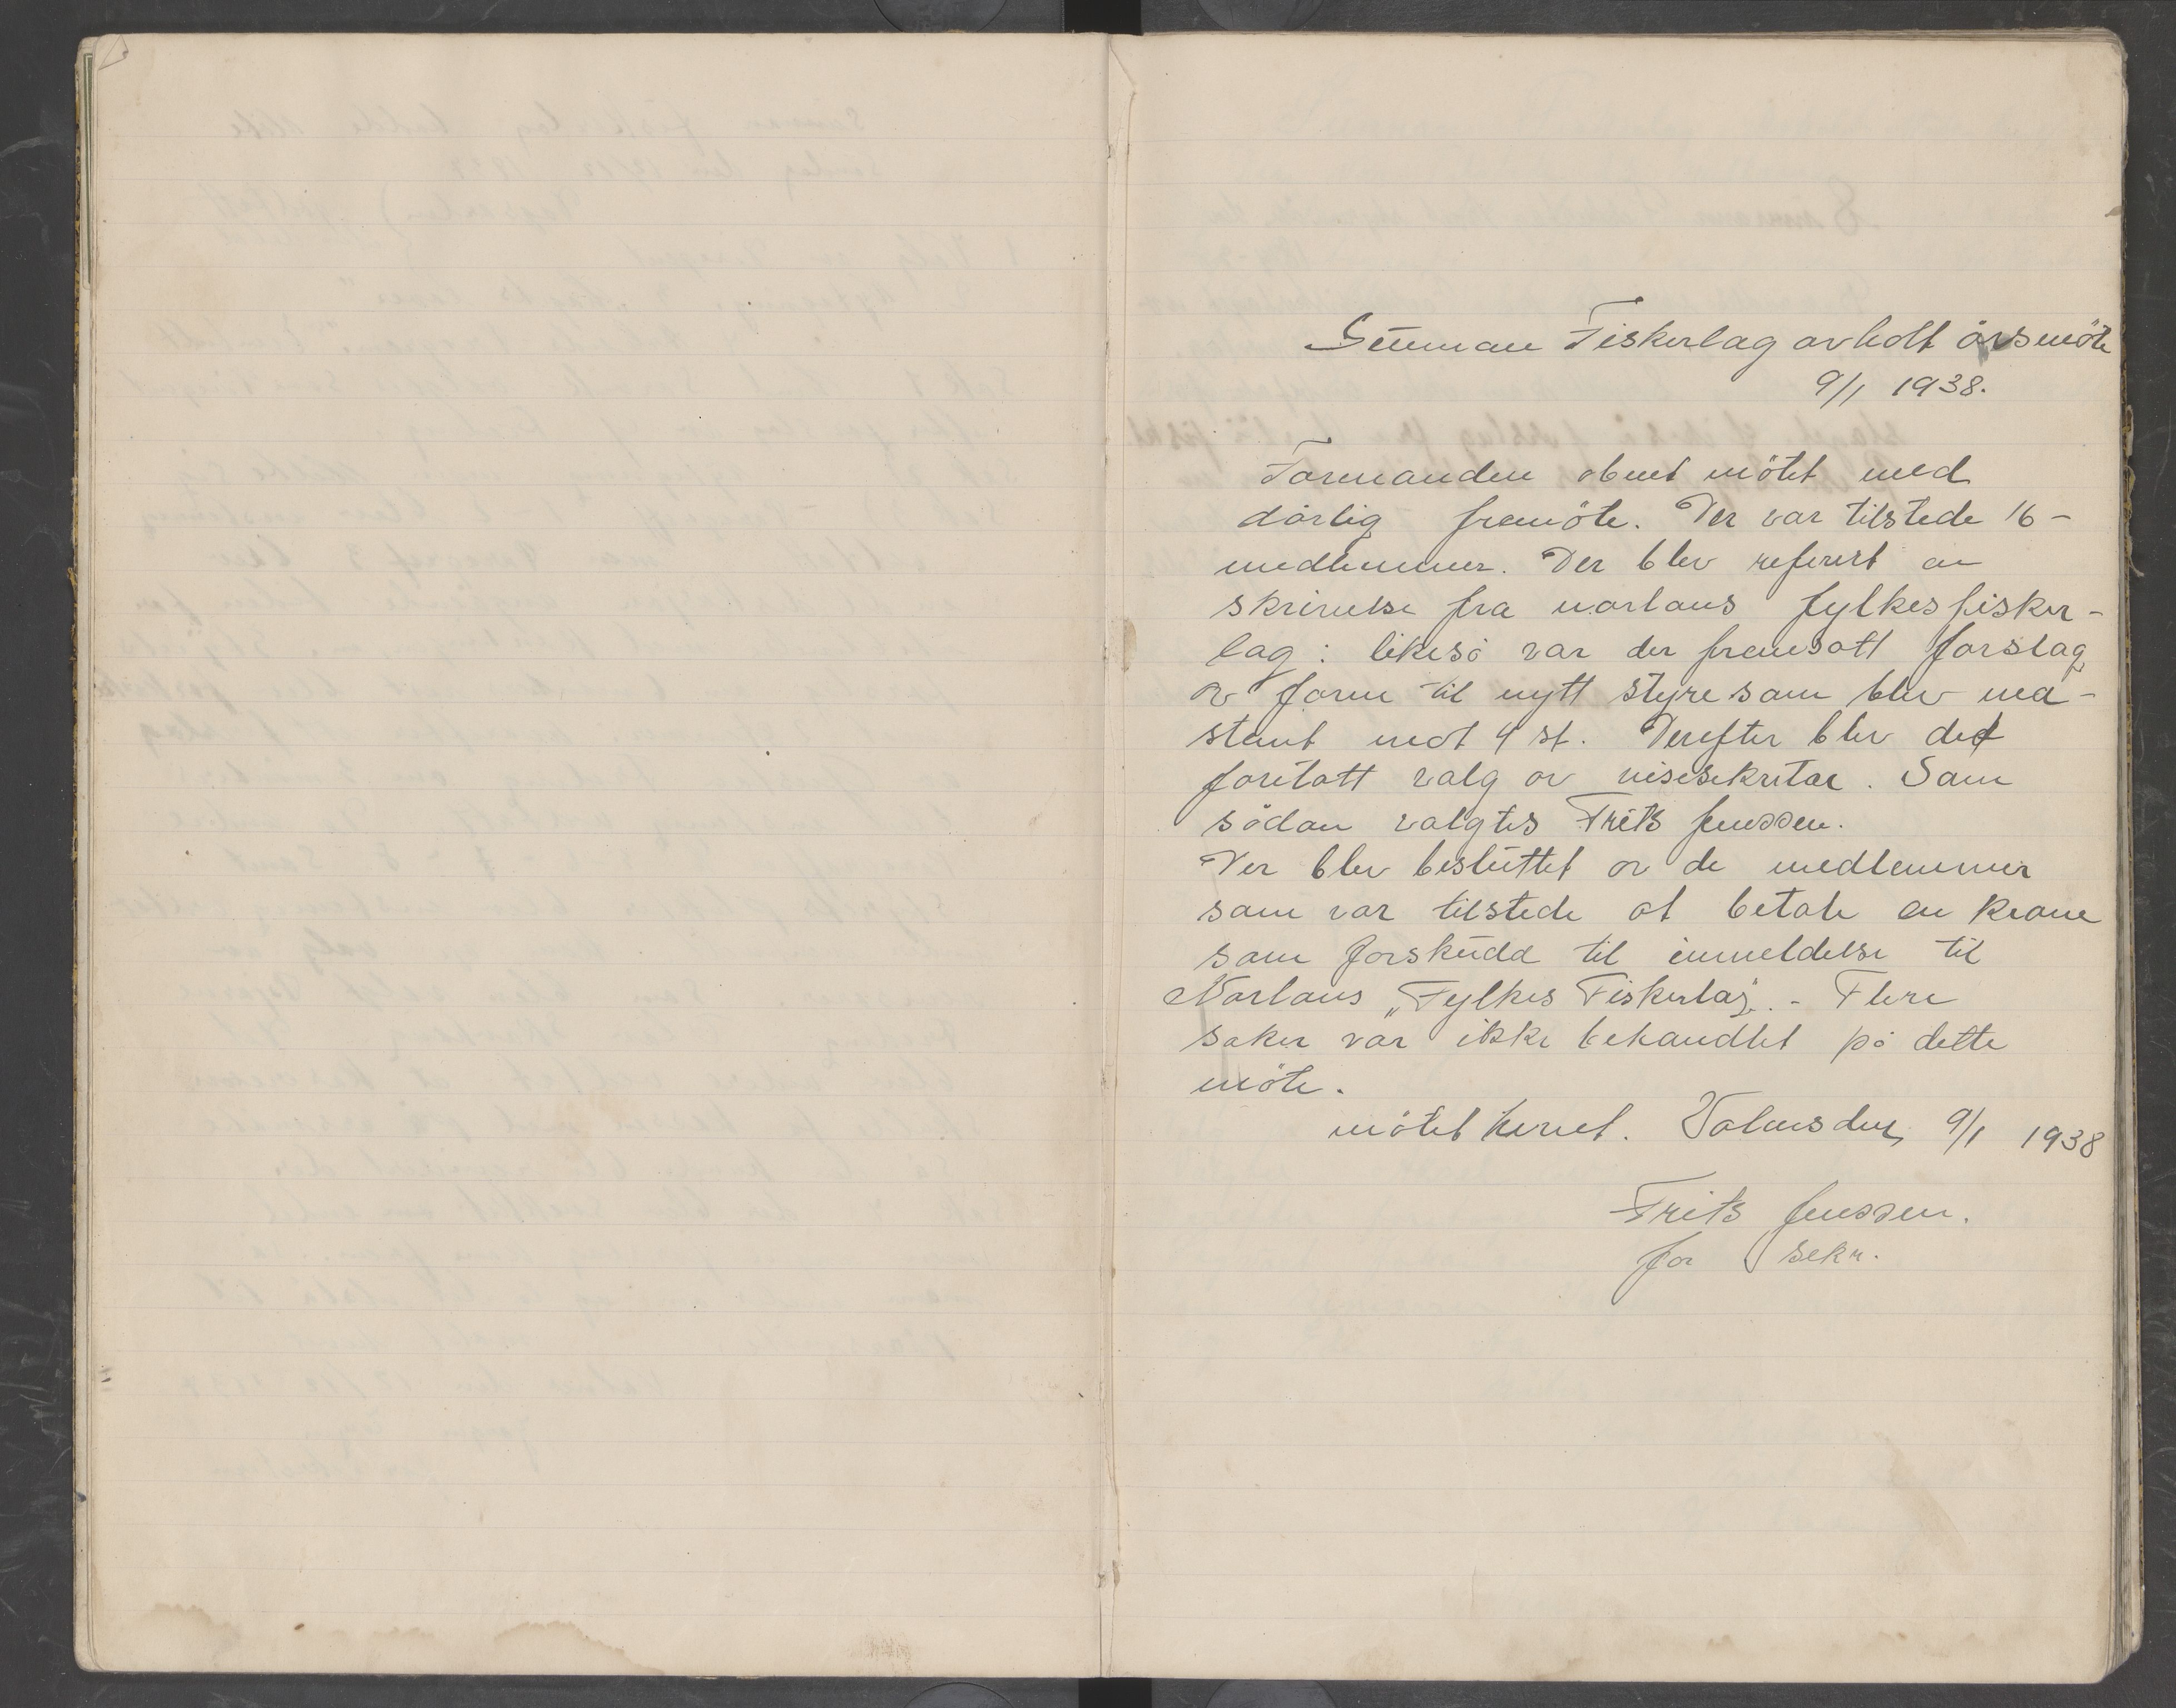 Sunnan Fiskerlag avholt årsmöte
9/1 1938.
Formanden obnet mötet med
dårlig fremöte. Der var tilstede 16-
medlemmer. Der blev referert en
skrivelse fra norlans fylkesfisker-
lag: likeså var der fremsatt forslag
av form til nytt styre som blev ned-
stemt mot 4 st. Derefter blev det
foretatt valg av visesekretær. Som
sådan valgtes Frits Jenssen.
Der blev besluttet av de medlemmer
som var tilstede at betale en krone
som forskudd til innmeldelse til
Norlans „Fylkes Fiskerlag". - Flere
saker var ikke behandlet på dette
möte.
mötet hevet. 9/1 1938
Frits Jenssen.
for sekr.